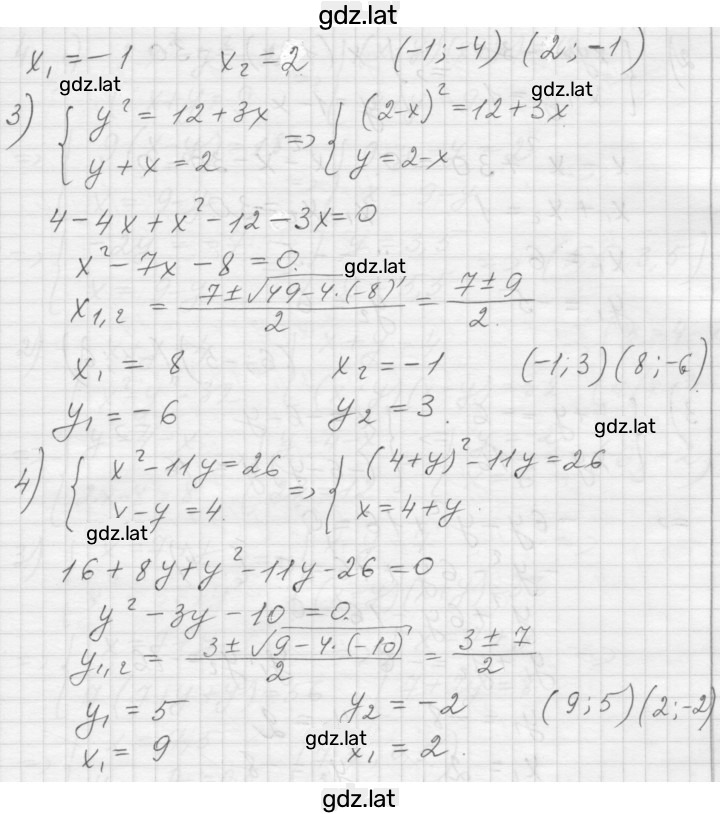 gdz.latt
x₁ = -1 x₂ = 2 (-1; -4) (2; -1)
gdz.latt
gdz.latt
3) { y² = 12 + 3x => { (2-x)² = 12 + 3x
y + x = 2 y = 2-x
4 - 4x + x² - 12 - 3x = 0
x² - 7x - 8 = 0.
gdz.latt
x₁,₂ = (7 ± √(49 - 4·(-8)))/2 = (7 ± 9)/2.
x₁ = 8 x₂ = -1 (-1; 3) (8; -6)
y₁ = -6 y₂ = 3.
gdz.latt
4) { x² - 11y = 26 => { (4+y)² - 11y = 26
x - y = 4. x = 4 + y
gdz.latt
16 + 8y + y² - 11y - 26 = 0
y² - 3y - 10 = 0.
y₁,₂ = (3 ± √(9 - 4·(-10)))/2 = (3 ± 7)/2
y₁ = 5 y₂ = -2 (9; 5) (2; -2)
gdz.latt
x₁ = 9 x₁ = 2.
gdz.latt